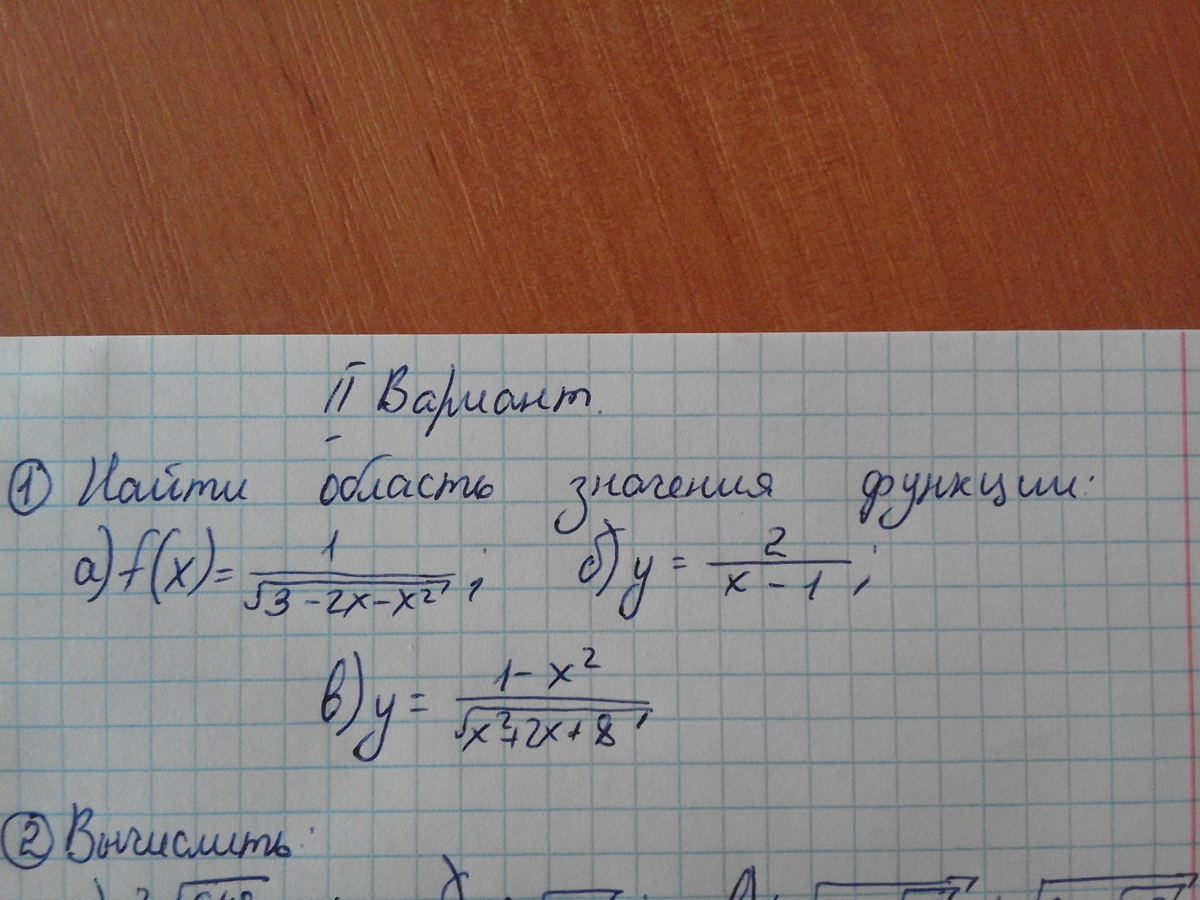 II Вариант.
① Найти область значения функции:
а) f(x) = 1/√(3-2x-x²); б) y = 2/(x-1);
в) y = (1-x²)/√(x²+2x+8)
② Вычислить: